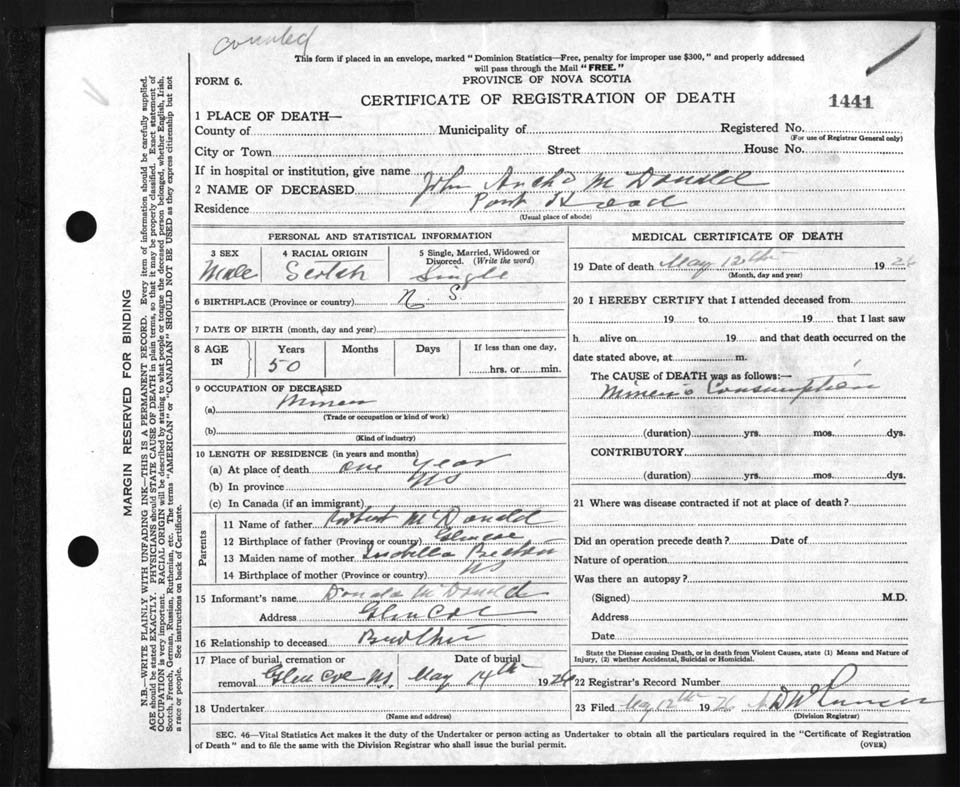 counted
This form if placed in an envelope, marked "Dominion Statistics—Free, penalty for improper use $300," and properly addressed
will pass through the Mail "FREE."
FORM 6.
PROVINCE OF NOVA SCOTIA
CERTIFICATE OF REGISTRATION OF DEATH
1441
1 PLACE OF DEATH—
County of Municipality of Registered No.
(For use of Registrar General only)
City or Town Street House No.
If in hospital or institution, give name
2 NAME OF DECEASED John McDonald
Residence Port Hood
(Usual place of abode)
PERSONAL AND STATISTICAL INFORMATION
3 SEX Male
4 RACIAL ORIGIN Scotch
5 Single, Married, Widowed or Divorced. (Write the word) Single
6 BIRTHPLACE (Province or country) N S.
7 DATE OF BIRTH (month, day and year)
8 AGE IN Years Months Days If less than one day, hrs. or min.
50
9 OCCUPATION OF DECEASED
(a) Miner
(Trade or occupation or kind of work)
(b)
(Kind of industry)
10 LENGTH OF RESIDENCE (in years and months)
(a) At place of death one year
(b) In province NS
(c) In Canada (if an immigrant)
Parents
11 Name of father Robert McDonald
12 Birthplace of father (Province or country) Glencoe
13 Maiden name of mother
14 Birthplace of mother (Province or country) NS
15 Informant's name Donald McDonald
Address Glencoe
16 Relationship to deceased Brother
17 Place of burial, cremation or removal Date of burial
Glencoe NS. May 14th 1926
18 Undertaker
(Name and address)
MEDICAL CERTIFICATE OF DEATH
19 Date of death May 12th 1926
(Month, day and year)
20 I HEREBY CERTIFY that I attended deceased from
19 to 19 that I last saw
h alive on 19 and that death occurred on the
date stated above, at m.
The CAUSE of DEATH was as follows:—
Miner's Consumption
(duration) yrs. mos. dys.
CONTRIBUTORY
(duration) yrs. mos. dys.
21 Where was disease contracted if not at place of death?
Did an operation precede death? Date of
Nature of operation
Was there an autopsy?
(Signed) M.D.
Address
Date
State the Disease causing Death, or in death from Violent Causes, state (1) Means and Nature of
Injury, (2) whether Accidental, Suicidal or Homicidal.
22 Registrar's Record Number
23 Filed May 12th 1926
(Division Registrar)
SEC. 46—Vital Statistics Act makes it the duty of the Undertaker or person acting as Undertaker to obtain all the particulars required in the "Certificate of Registration
of Death" and to file the same with the Division Registrar who shall issue the burial permit.
(OVER)
MARGIN RESERVED FOR BINDING
N.B.—WRITE PLAINLY WITH UNFADING INK—THIS IS A PERMANENT RECORD. Every item of information should be carefully supplied.
AGE should be stated EXACTLY. PHYSICIANS should STATE CAUSE OF DEATH in plain terms, so that it may be properly classified. Exact statement of
OCCUPATION is very important. RACIAL ORIGIN will be described by stating to what people or tongue the deceased person belonged, whether English, Irish,
Scotch, French, German, Russian, Ruthenian, etc. The terms "AMERICAN" or "CANADIAN" SHOULD NOT BE USED as they express citizenship but not
a race or people. See instructions on back of Certificate.